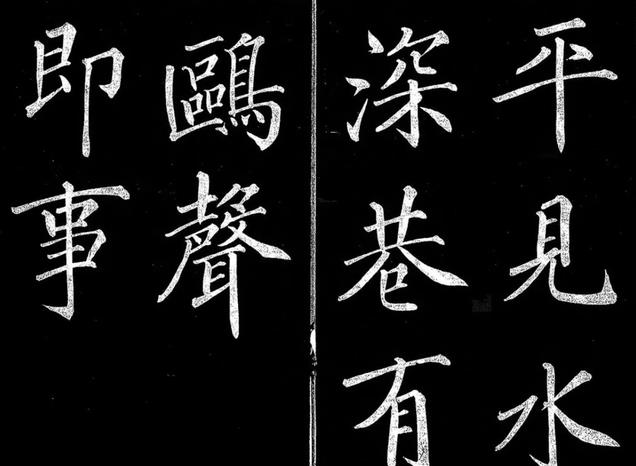 平見水
深巷有
鷗聲
即事